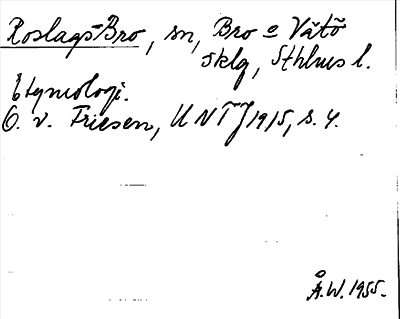 Roslags-Bro, sn, Bro o Vätö
sklg, Sthlms l.
Etymologi.
O. v. Friesen, UNT J 1915, s. 4.
Å.W. 1955.